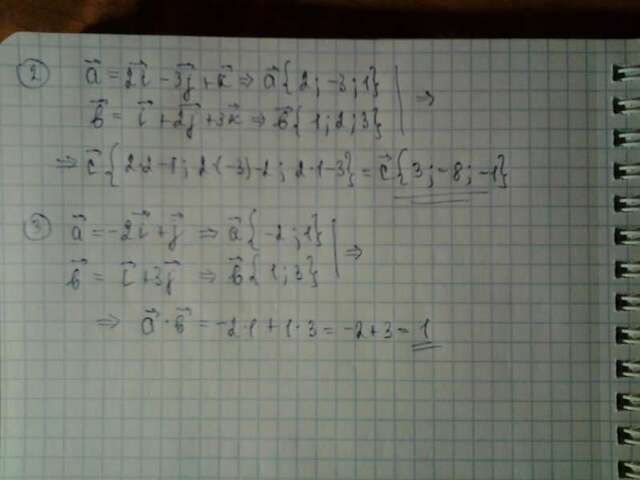 ② a⃗ = 2i⃗ - 3j⃗ + k⃗ ⇒ a⃗{2; -3; 1} |
b⃗ = i⃗ + 2j⃗ + 3k⃗ ⇒ b⃗{1; 2; 3} | ⇒
⇒ c⃗{2·2-1; 2·(-3)-2; 2·1-3} = c⃗{3; -8; -1}
③ a⃗ = -2i⃗ + j⃗ ⇒ a⃗{-2; 1} |
b⃗ = i⃗ + 3j⃗ ⇒ b⃗{1; 3} | ⇒
⇒ a⃗ · b⃗ = -2·1 + 1·3 = -2+3 = 1